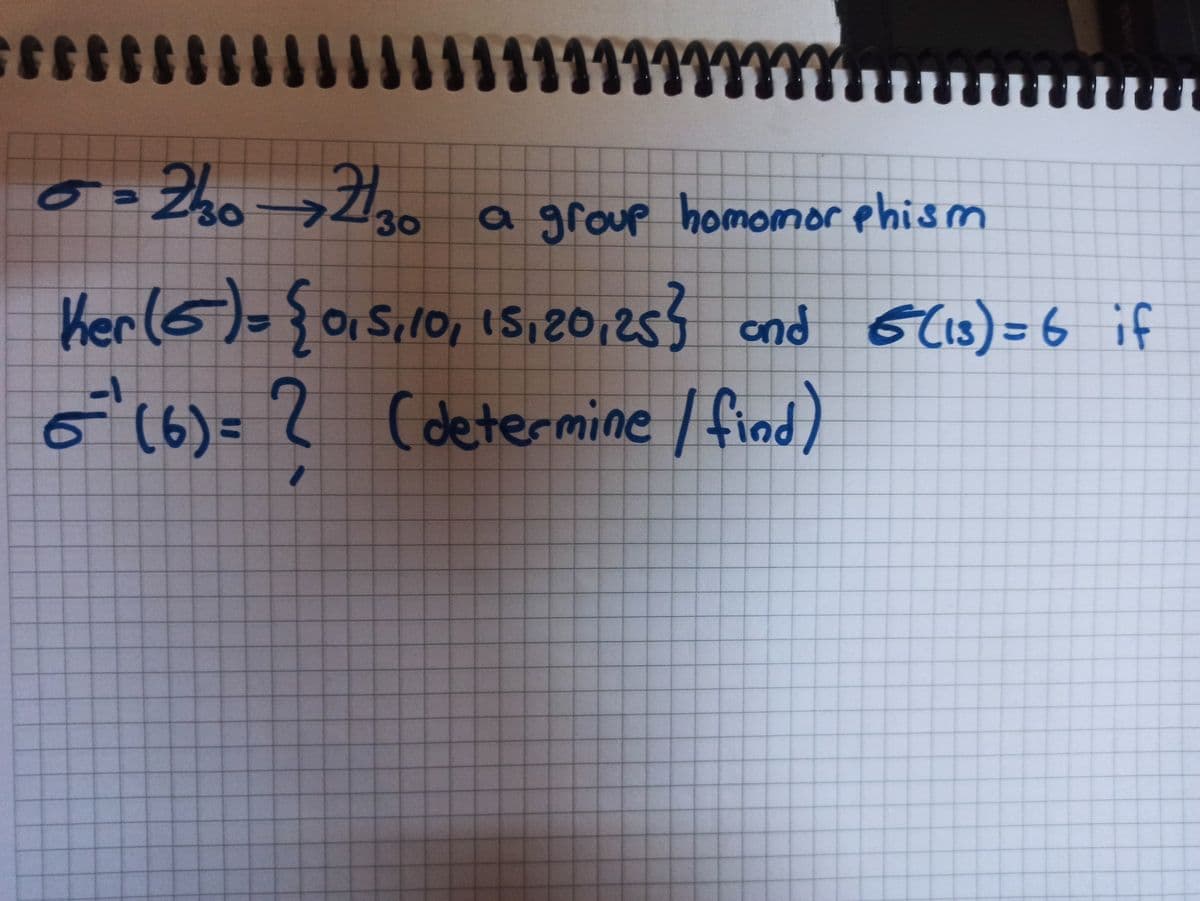 σ = ℤ30 → ℤ30 a group homomorphism
Ker(σ) = {0,5,10,15,20,25} and σ(13) = 6 if
σ⁻¹(6) = ? (determine / find)